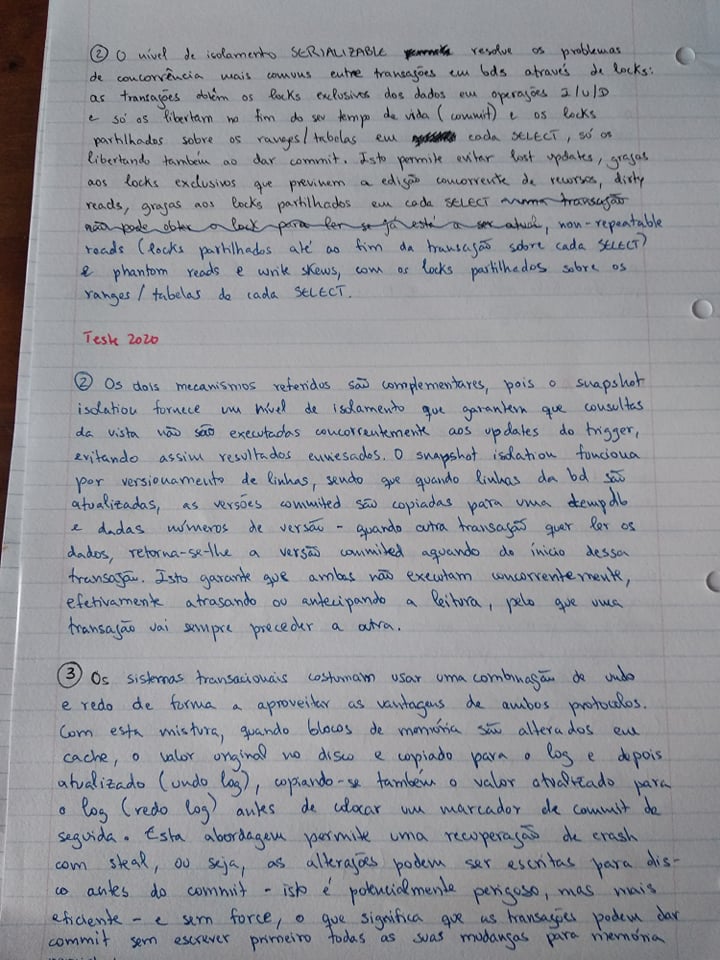 ② O nível de isolamento SERIALIZABLE resolve os problemas
de concorrência mais comuns entre transações em bds através de locks:
as transações obtêm os locks exclusivos dos dados em operações I/U/D
e só os libertam no fim do seu tempo de vida (commit) e os locks
partilhados sobre os ranges/tabelas em cada SELECT, só os
libertando também ao dar commit. Isto permite evitar lost updates, graças
aos locks exclusivos que previnem a edição concorrente de recursos, dirty
reads, graças aos locks partilhados em cada SELECT uma transação
não pode obter o lock para ler se já está a ser atual, non-repeatable
reads (locks partilhados até ao fim da transação sobre cada SELECT)
e phantom reads e write skews, com os locks partilhados sobre os
ranges/tabelas de cada SELECT.
Teste 2020
② Os dois mecanismos referidos são complementares, pois o snapshot
isolation fornece um nível de isolamento que garantem que consultas
da vista não são executadas concorrentemente aos updates do trigger,
evitando assim resultados enviesados. O snapshot isolation funciona
por versionamento de linhas, sendo que quando linhas da bd são
atualizadas, as versões commited são copiadas para uma tempdb
e dadas números de versão - quando outra transação quer ler os
dados, retorna-se-lhe a versão commited aquando do inicio dessa
transação. Isto garante que ambas não executam concorrentemente,
efetivamente atrasando ou antecipando a leitura, pelo que uma
transação vai sempre preceder a outra.
③ Os sistemas transacionais costumam usar uma combinação de undo
e redo de forma a aproveitar as vantagens de ambos protocolos.
Com esta mistura, quando blocos de memória são alterados em
cache, o valor original no disco e copiado para o log e depois
atualizado (undo log), copiando-se também o valor atualizado para
o log (redo log) antes de colocar um marcador de commit de
seguida. Esta abordagem permite uma recuperação de crash
com steal, ou seja, as alterações podem ser escritas para dis-
co antes do commit - isto é potencialmente perigoso, mas mais
eficiente - e sem force, o que significa que as transações podem dar
commit sem escrever primeiro todas as suas mudanças para memória